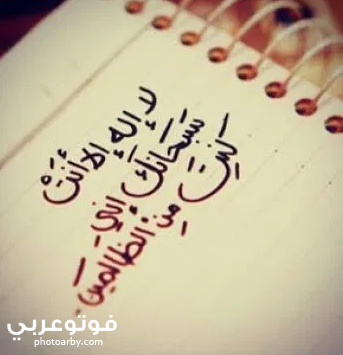 لا إله إلا أَنْتَ
سبحانك إني
كنت من الظالمين
فوتوعربي
photoarby.com